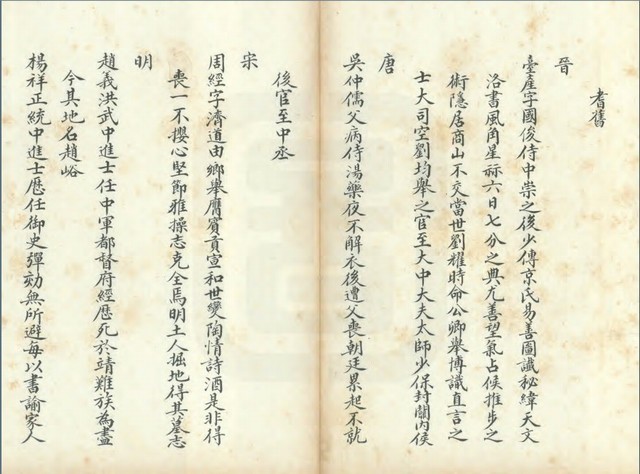 耆舊
晉
臺產字國俊侍中崇之後少傳京氏易善圖讖秘緯天文
洛書風角星祘六日七分之典尤善望氣占候推步之
術隱居商山不交當世劉耀時命公卿舉博識直言之
士大司空劉均舉之官至大中大夫太師少保封關內侯
唐
吳仲儒父病侍湯藥夜不解衣後遭父喪朝廷累起不就
後官至中丞
宋
周經字濟道由鄉舉膺賓貢宣和世變陶情詩酒是非得
喪一不攖心堅節雅操志克全焉明土人掘地得其墓志
明
趙義洪武中進士任中軍都督府經歷死於靖難族為盡
今其地名趙峪
楊祥正統中進士歷任御史彈劾無所避每以書諭家人